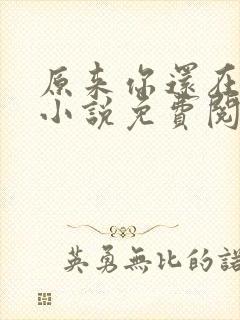 原来你還在
小說免費閱
英勇無比的諾